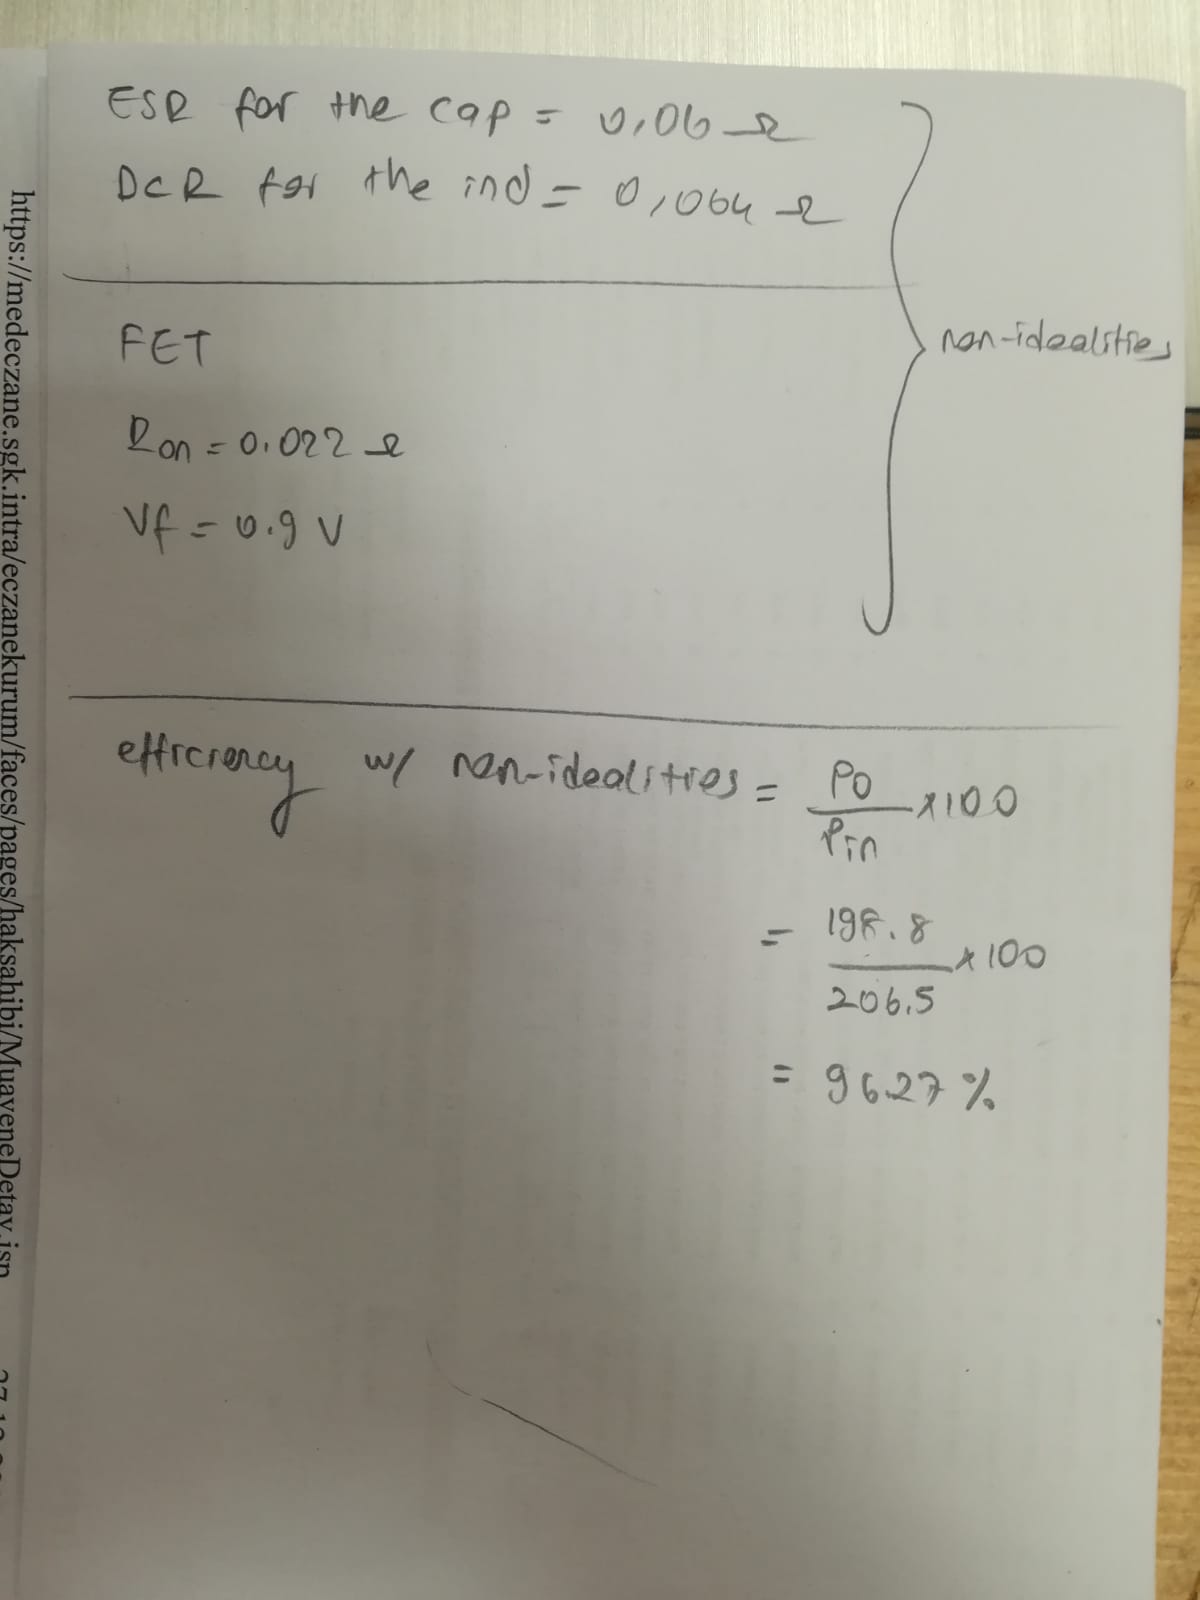 ESR for the cap = 0,06 Ω
DCR for the ind = 0,064 Ω
non-idealities
FET
Ron = 0.022 Ω
Vf = 0.9 V
efficiency w/ non-idealities = Po / Pin × 100
= 198.8 / 206.5 × 100
= 96.27 %
https://medeczane.sgk.intra/eczanekurum/faces/pages/haksahibi/MuayeneDetay.jsp